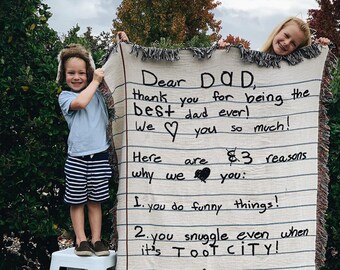 Dear DAD,
thank you for being the
best dad ever!
We ♡ you so much!
Here are 3 reasons
why we ♥ you:
1. you do funny things!
2. you snuggle even when
it's TOOT CITY!